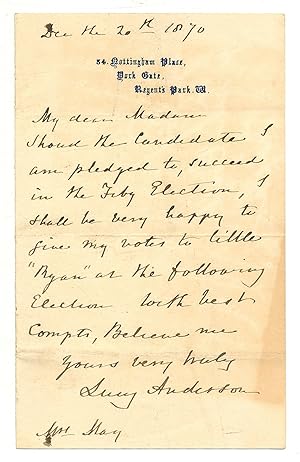 Dec the 20th 1870
54. Nottingham Place,
York Gate,
Regent's Park. W.
My dear Madam
Shoud the Candidate I
am pledged to, succeed
in the Feby Election, I
shall be very happy to
give my votes to little
"Ryan" at the following
Election with best
Compts, Believe me
Yours very truly
Lucy Anderson
Mrs May